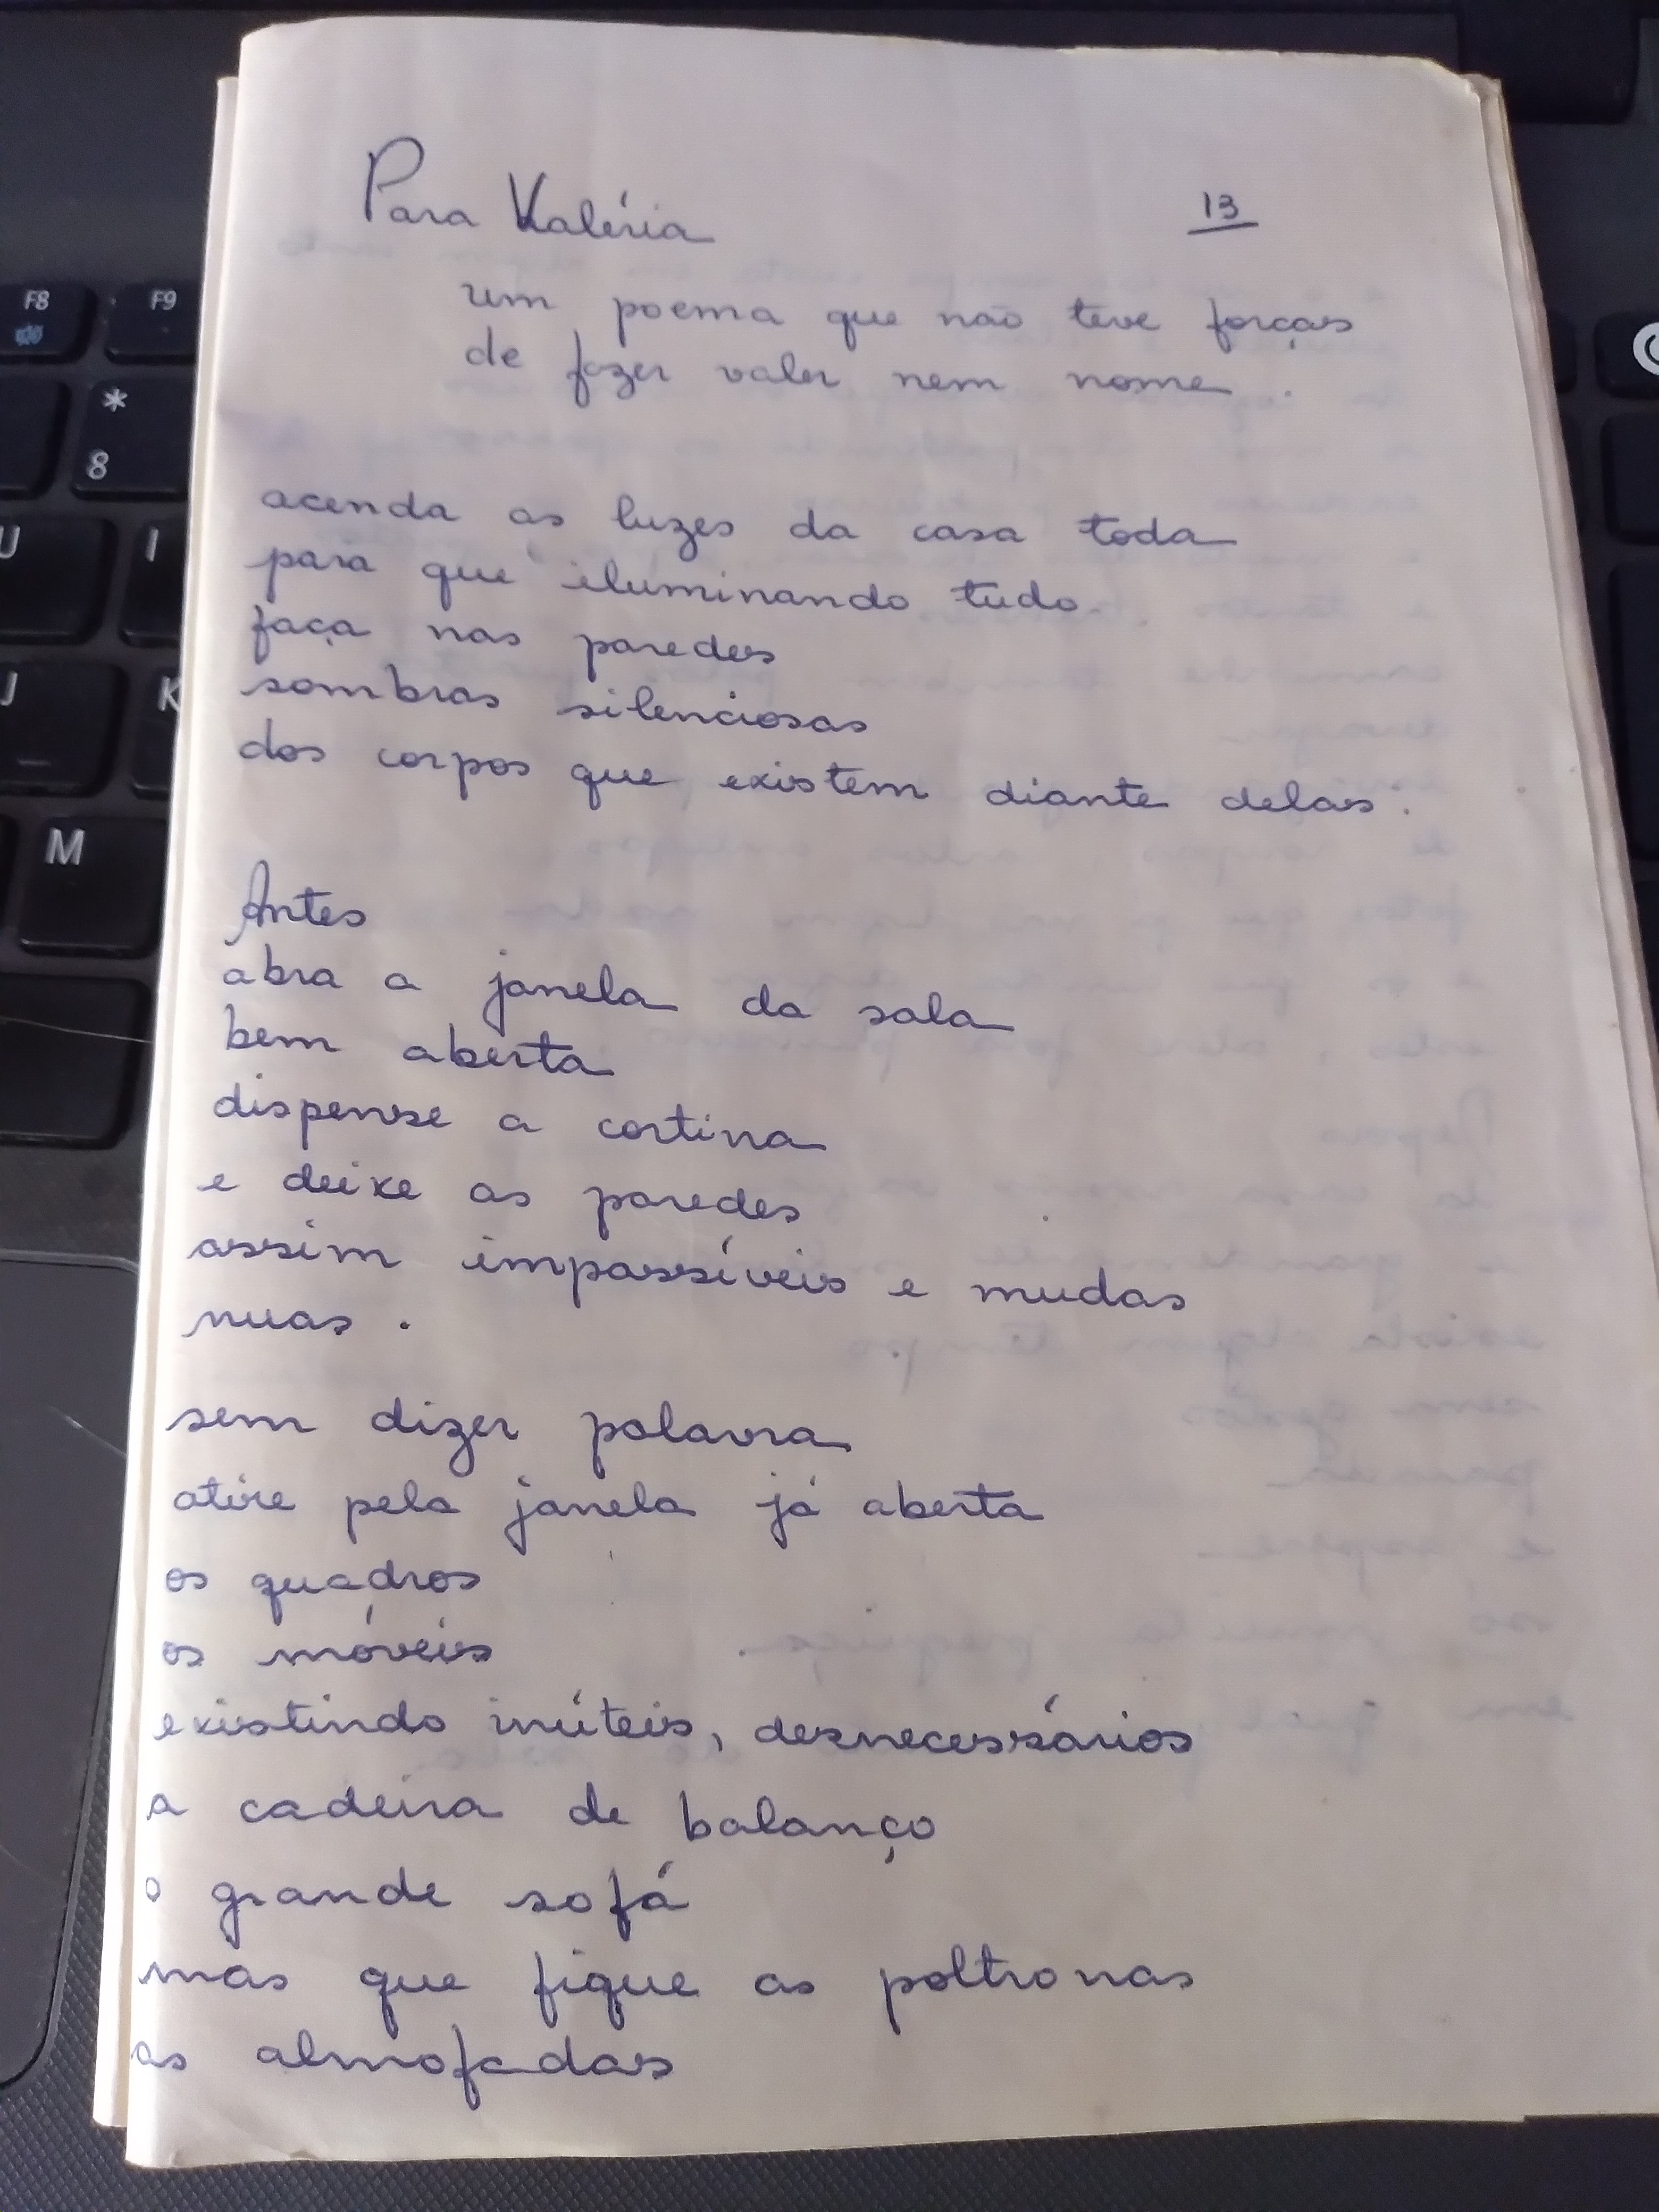 Para Valéria
13
um poema que não teve forças
de fazer valer nem nome.
acenda as luzes da casa toda
para que iluminando tudo
faça nas paredes
sombras silenciosas
dos corpos que existem diante delas.
Antes
abra a janela da sala
bem aberta
dispense a cortina
e deixe as paredes
assim impassíveis e mudas
nuas.
sem dizer palavra
atire pela janela já aberta
os quadros
os móveis
existindo inúteis, desnecessários
a cadeira de balanço
o grande sofá
mas que fique as poltronas
as almofadas
F8
F9
*
8
U
I
J
K
M